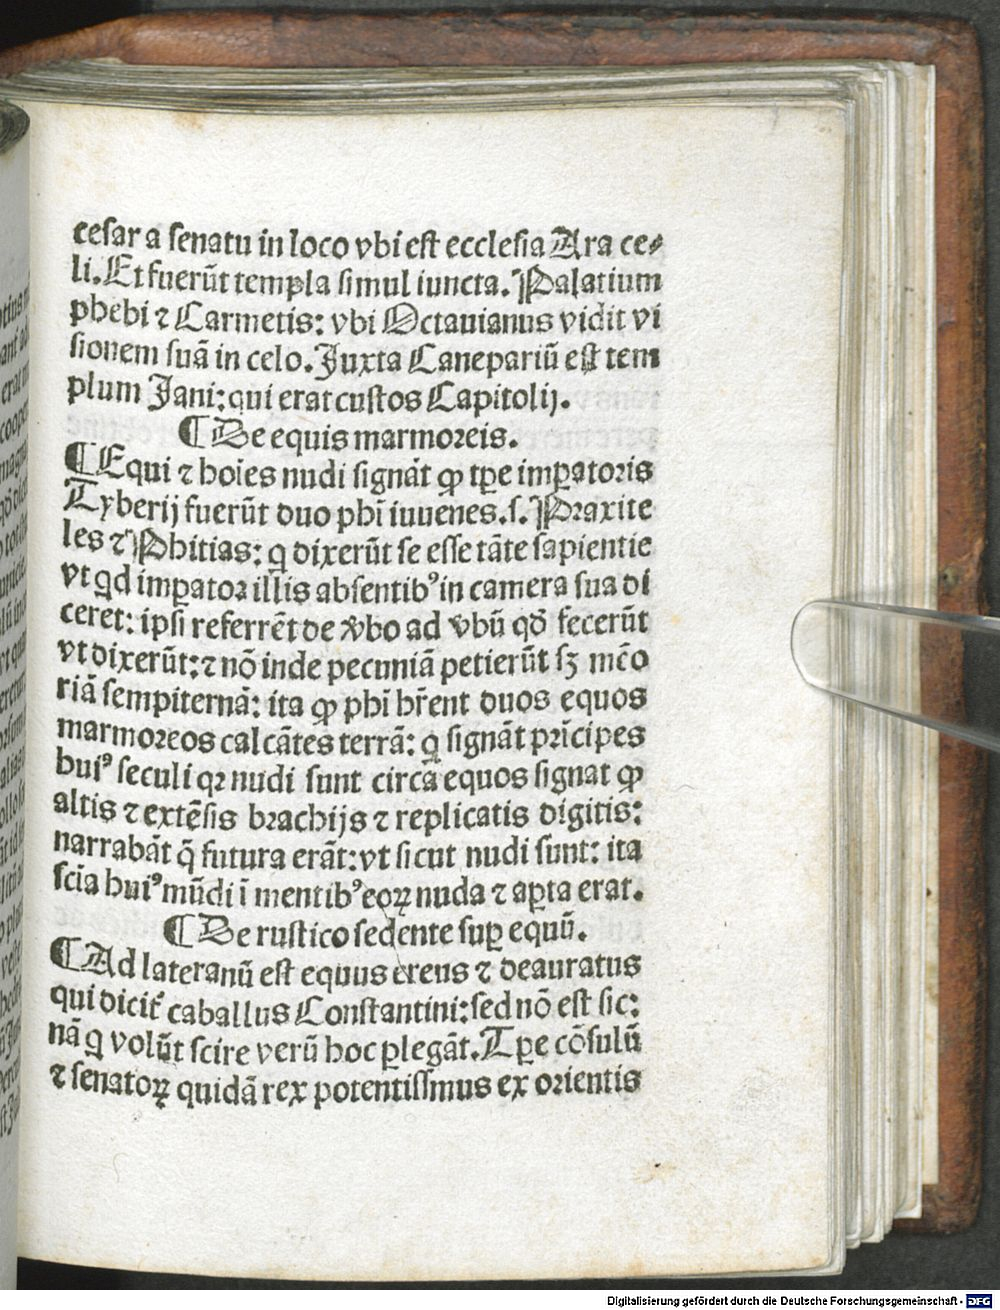 ceſar a ſenatu in loco vbi eſt eccleſia Ara ce⸗
li. Et fuerūt templa ſimul iuncta. Palatium
phebi ⁊ Carmetis: vbi Octauianus vidit vi
ſionem ſuā in celo. Juxta Canepariū eſt tem
plum Jani: qui erat cuſtos Capitolij.
¶ De equis marmoreis.
¶ Equi ⁊ hoīes nudi ſignāt ꝙ tꝑe imꝑatoris
Tyberij fuerūt duo phī iuuenes .ſ. Praxite
les ⁊ Phitias: q dixerūt ſe eſſe tāte ſapientie
vt qd imꝑator illis abſentibꝰ in camera ſua di
ceret: ipſi referrēt de v̾bo ad v̾bū qđ fecerūt
vt dixerūt: ⁊ nō inde pecuniā petierūt ſꝫ mēo
riā ſempiternā: ita ꝙ phī hr̄ent duos equos
marmoreos calcātes terrā: q ſignāt prīcipes
huiꝰ ſeculi qꝛ nudi ſunt circa equos ſignat ꝙ
altis ⁊ extēſis brachijs ⁊ replicatis digitis:
narrabāt q̄ futura erāt: vt ſicut nudi ſunt: ita
ſcīa huiꝰ mūdi ī mentibꝰ eoꝝ nuda ⁊ aꝑta erat.
¶ De ruſtico ſedente ſuꝑ equū.
¶ Ad lateranū eſt equus ereus ⁊ deauratus
qui dicit̄ caballus Conſtantini: ſed nō eſt ſic:
nā q volūt ſcire verū hoc ꝑlegāt. Tꝑe cōſulū
⁊ ſenatoꝝ quidā rex potentiſſmus ex orientis
Digitalisierung gefördert durch die Deutsche Forschungsgemeinschaft - DFG